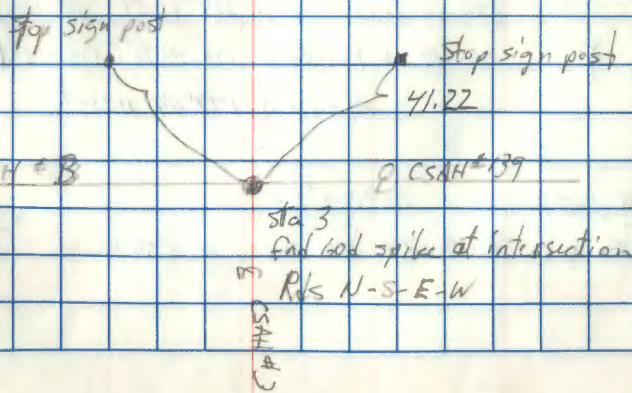 stop sign post
stop sign post
41.22
H # B
℄ CSAH #139
Sta 3
fnd 60d spike at intersection
Rds N-S-E-W
℄ CSAH #